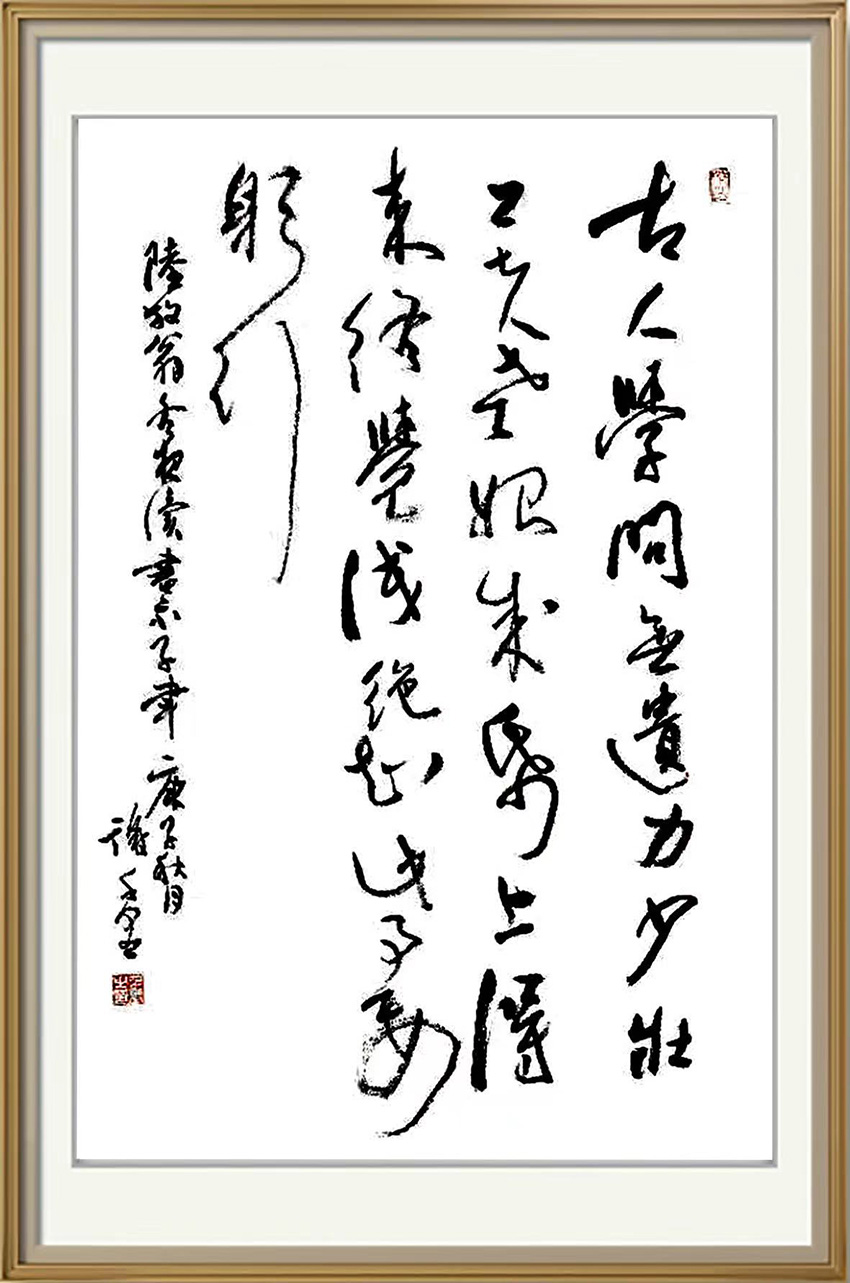 古人學問無遺力少壯
工夫老始成帋上得
來終覺淺絕知此事要
躬行
陸放翁冬夜讀書示子聿 庚子秋月